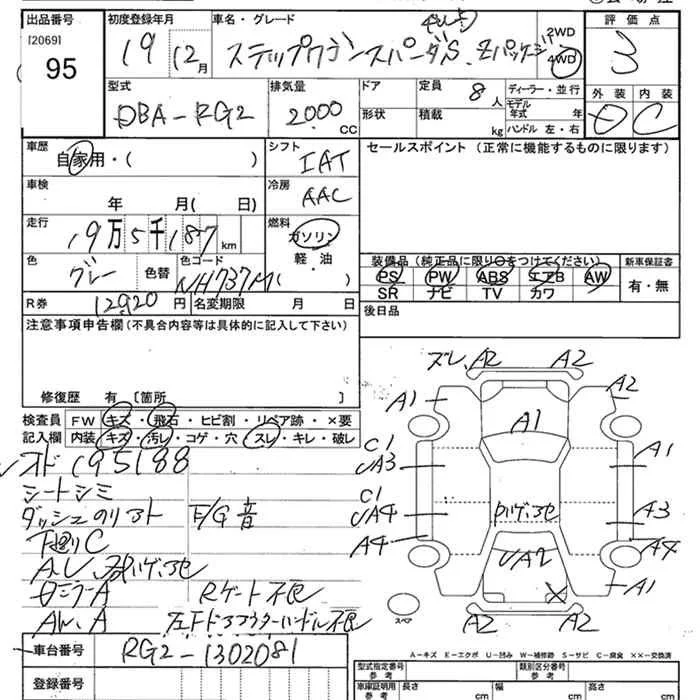 出品番号
[2069]
95
初度登録年月
19 12月
車名・グレード
ステップワゴンスパーダS.Zパッケージ
2WD
4WD
評価点
3
型式
DBA-RG2
排気量
2000 CC
ドア
形状
定員 8人
積載 kg
ディーラー・並行
モデル年式 年
ハンドル 左・右
外装 内装
D C
車歴
自家用・( )
シフト
IAT
セールスポイント (正常に機能するものに限ります)
車検
年 月( 日)
冷房
AAC
走行
19万5千187km
燃料
ガソリン
軽・油
( )
色
グレー 色替
色コード
NH737M
装備品 (純正品に限り○をつけてください)
PS PW ABS エアB AW
SR ナビ TV カワ
新車保証書
有・無
R券 12920円 名変期限 月 日
後日品
注意事項申告欄 (不具合内容等は具体的に記入して下さい)
修復歴 有 [箇所 ]
検査員
記入欄
FW キズ・飛石・ヒビ割・リペア跡・×要
内装 キズ・汚レ・コゲ・穴・スレ・キレ・破レ
195188
シートシミ
ダッシュのリフト F/G音
下廻りC
Dミラー A Rゲート不良
AW.A 左Fドアアウターハンドル不良
ズレ.A2 A2
A1 A2
A1
C1
UA3 A1
C1
UA4 A3
A4 A4
UA2 A1
A2 A2
スペア
車台番号 RG2-1302081
登録番号
A-キズ E-エクボ U-凹み W-補修跡 S-サビ C-腐食 ××-交換済
型式指定番号 参考
類別区分番号 参考
車庫証明用 参考
長さ cm 幅 cm 高さ cm